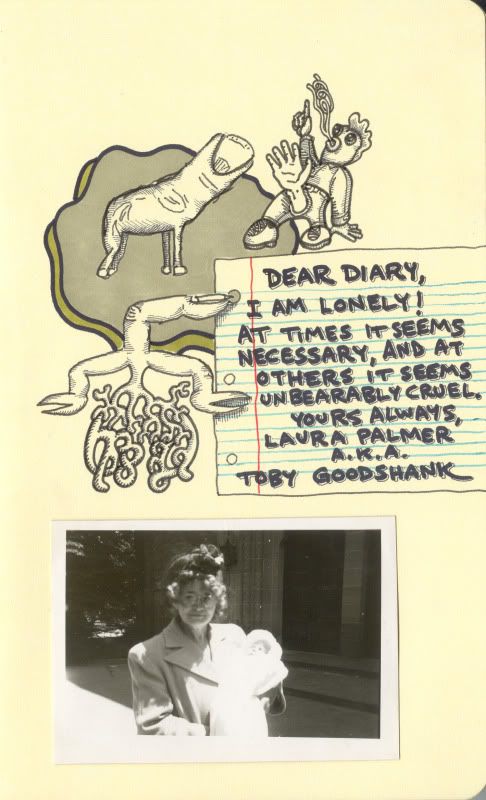 DEAR DIARY,
I AM LONELY!
AT TIMES IT SEEMS
NECESSARY, AND AT
OTHERS IT SEEMS
UNBEARABLY CRUEL.
YOURS ALWAYS,
LAURA PALMER
A.K.A.
TOBY GOODSHANK